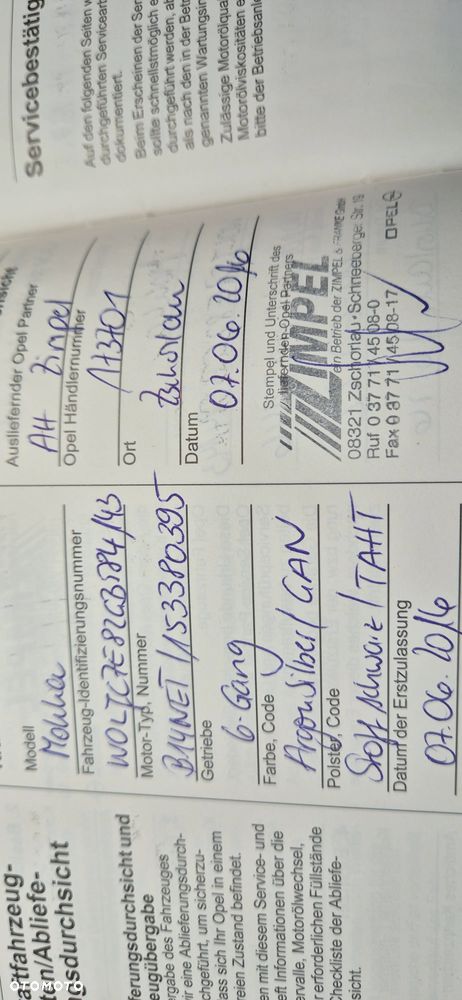 aftfahrzeug-
ten/Abliefe-
gsdurchsicht
ferungsdurchsicht und
eugübergabe
ergabe des Fahrzeuges
ir eine Ablieferungsdurch-
chgeführt, um sicherzu-
ass sich Ihr Opel in einem
reien Zustand befindet.
en mit diesem Service- und
eft Informationen über die
ervalle, Motorölwechsel,
erforderlichen Füllstände
Checkliste der Abliefe-
sicht.
Modell
Mokka
Fahrzeug-Identifizierungsnummer
Motor-Typ, Nummer
B14NET/153380395
Getriebe
6-Gang
Farbe, Code
Argonsilber/GAN
Polster, Code
Stoff schwarz/TAHT
Datum der Erstzulassung
07.06.2016
Ausliefernder Opel Partner
AH Zimpel
Opel Händlernummer
Ort
Zschorlau
Datum
07.06.2016
Stempel und Unterschrift des
ausliefernden Opel Partners
ZIMPEL
ein Betrieb der ZIMPEL & FRANKE GmbH
08321 Zschorlau · Schneeberger Str. 19
Ruf 0 37 71 / 45 08-0
Fax 0 37 71 / 45 08-17
OPEL
Servicebestätig
Auf den folgenden Seiten w
durchgeführten Servicearb
dokumentiert.
Beim Erscheinen der Ser
sollte schnellstmöglich e
durchgeführt werden, ab
als nach den in der Betr
genannten Wartungsin
Zulässige Motorölqua
Motorölviskositäten e
bitte der Betriebsanle
OTOMOTO